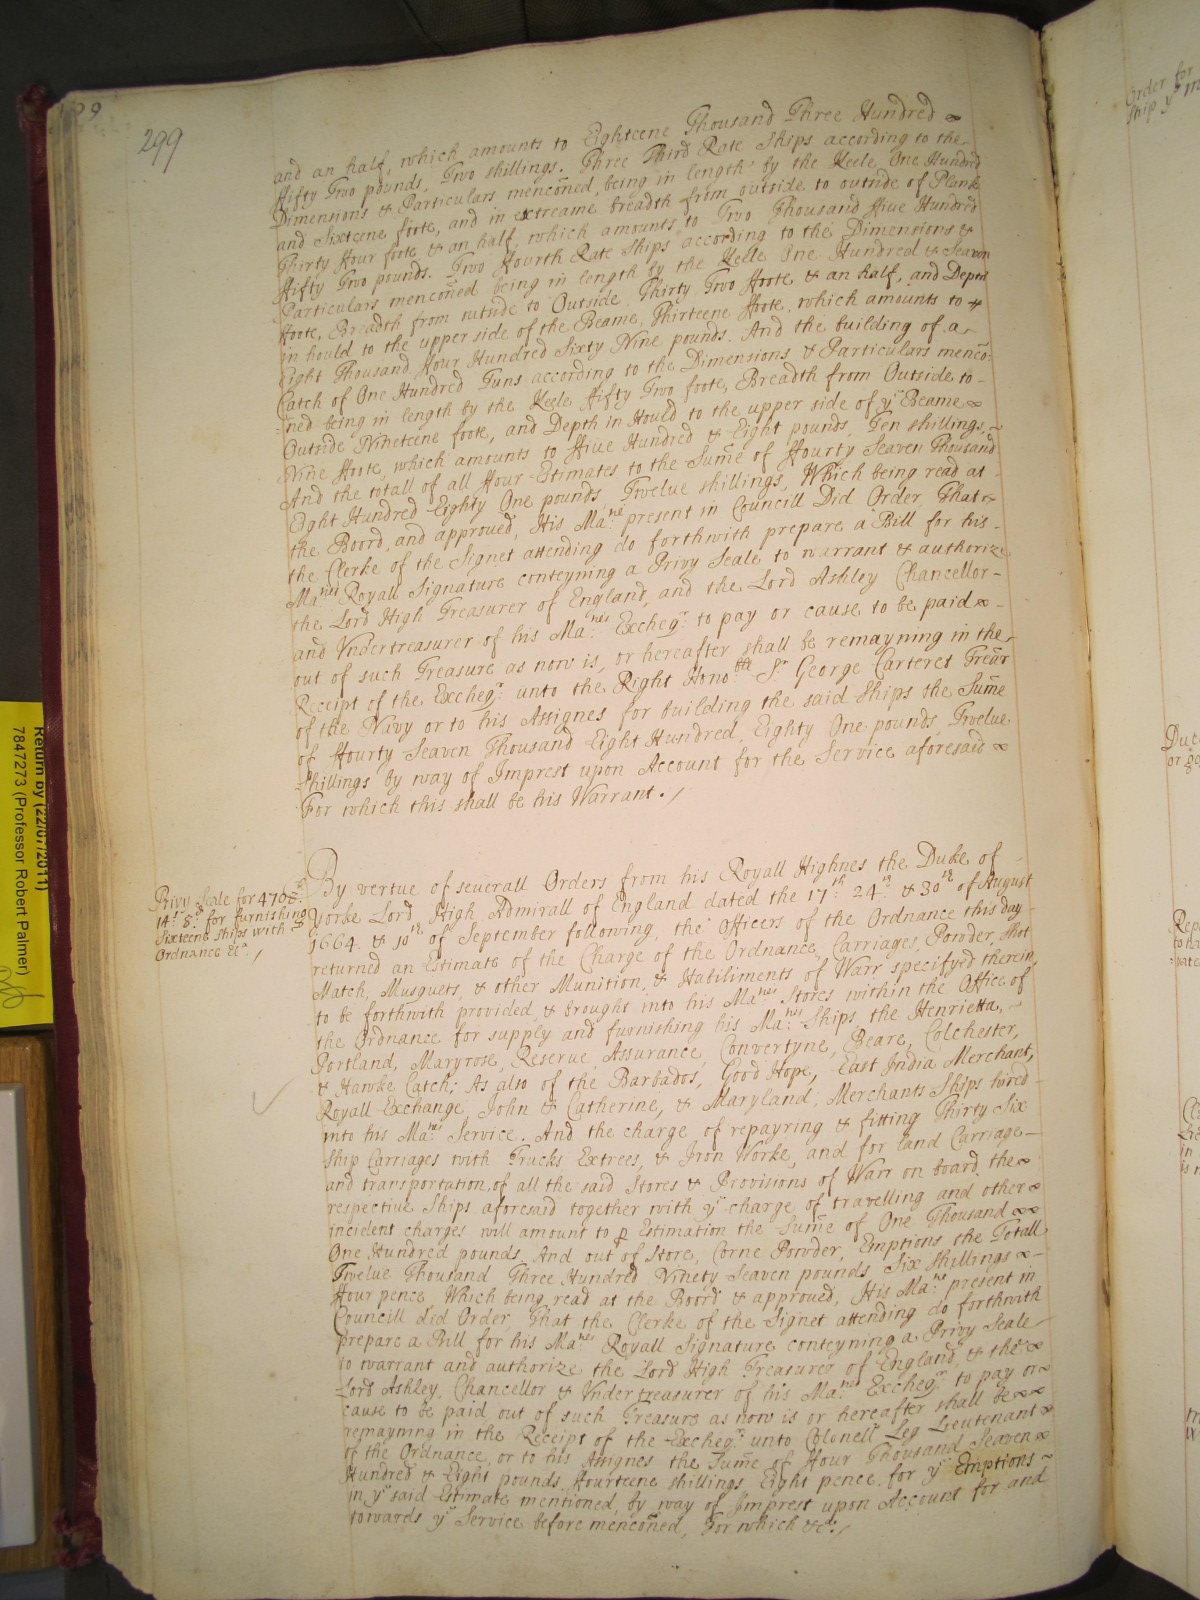 299
and an half, which amounts to Eighteene Thousand Three Hundred
ffifty Two pounds, Two shillings. Three Third Rate Ships according to the
Dimensions & Particulars mencõned, being in length by the Keele, One Hundred
and Sixteene foote, and in extreame breadth from outside to outside of Plank
Thirty ffour foote & an half, which amounts to Two Thousand ffive Hundred
ffifty Two pounds. Two ffourth Rate Ships according to the Dimensions &
Particulars mencõned being in length by the Keele One Hundred & Seaven
ffoote, Breadth from outside to Outside Thirty Two ffoote & an half, and Depth
in hould to the upper side of the Beame, Thirteene ffoote, which amounts to
Eight Thousand ffour Hundred Sixty Nine pounds. And the building of a
Catch of One Hundred Tuns according to the Dimensions & Particulars menco:
:ned being in length by the Keele ffifty Two foote, Breadth from Outside to
Outside Nineteene foote, and Depth in Hould to the upper side of yᵉ Beame
Nine ffoote, which amounts to ffive Hundred & Eight pounds, Ten shillings,
And the totall of all ffour Estimates to the Sum̃e of ffourty Seaven Thousand
Eight Hundred Eighty One pounds, Twelve shillings, Which being read at
the Boord, and approved, His Maᵗⁱᵉ present in Councill Did Order, That
the Clerke of the Signet attending do forthwith prepare a Bill for his
Maᵗⁱᵉˢ Royall Signature conteyning a Privy Seale to warrant & authorize
the Lord High Treasurer of England, and the Lord Ashley Chancellor
and Undertreasurer of his Maᵗⁱᵉˢ Excheqʳ: to pay or cause to be paid
out of such Treasure as now is, or hereafter shall be remayning in the
Receipt of the Excheqʳ: unto the Right Honoᵇˡᵉ Sʳ George Carteret Trẽar
of the Navy or to his Assignes for building the said Ships the Sum̃e
of ffourty Seaven Thousand Eight Hundred, Eighty One pounds, Twelve
shillings by way of Imprest upon Account for the Service aforesaid
For which this shall be his Warrant.
Privy Seale for 4708ˡⁱ
14ˢ 8ᵈ for furnishing
Sixteene Ships with
Ordnance &cᵃ.
By vertue of severall Orders from his Royall Highnes the Duke of
Yorke Lord High Admirall of England dated the 17ᵗʰ 24ᵗʰ & 30ᵗʰ of August
1664. & 10ᵗʰ of September following, the Officers of the Ordnance this day
returned an Estimate of the Charge of the Ordnance, Carriages, Powder, Shot
Match, Musquets, & other Munition, & Habiliments of Warr specifyed therein,
to be forthwith provided, & brought into his Maᵗⁱᵉˢ Stores within the Office of
the Ordnance for supply and furnishing his Maᵗⁱᵉˢ Ships the Henrietta,
Portland, Maryrose, Reserve, Assurance, Convertyne, Beare, Colchester,
& Hawke Catch; As also of the Barbados, Good Hope, East India Merchant,
Royall Exchange, John & Catherine, & Maryland, Merchants Ships hired
into his Maᵗⁱᵉˢ Service. And the charge of repayring & fitting Thirty Six
Ship Carriages with Trucks Extrees, & Iron Worke, and for land Carriage
and transportation of all the said Stores & Provisions of Warr on board the
respective Ships aforesaid together with yᵉ charge of travelling and other
incident charges will amount to p Estimation the Sum̃e of One Thousand
One Hundred pounds, And out of Store, Corne Powder, Emptions the Totall
Twelve Thousand, Three Hundred Ninety Seaven pounds Six shillings
ffour pence. Which being read at the Boord & approved, His Maᵗⁱᵉ present in
Councill did Order, That the Clerke of the Signet attending do forthwith
prepare a Bill for his Maᵗⁱᵉˢ Royall Signature conteyning a Privy Seale
to warrant and authorize the Lord High Treasurer of England, & the
Lord Ashley, Chancellor & Undertreasurer of his Maᵗⁱᵉˢ Excheqʳ to pay or
cause to be paid out of such Treasure as now is or hereafter shall be
remayning in the Receipt of the Excheqʳ: unto Colonell Leg Lieutenant
of the Ordnance, or to his Assignes the Sum̃e of ffour Thousand Seaven
Hundred & Eight pounds, ffourteene shillings Eight pence, for yᵉ Emptions
in yᵉ said Estimate mentioned, by way of Imprest upon Account for and
towards yᵉ Service before mencõned, For which &cᵃ:
Return by (22/07/2011)
7847273 (Professor Robert Palmer)
Order for
Ship yᵉ